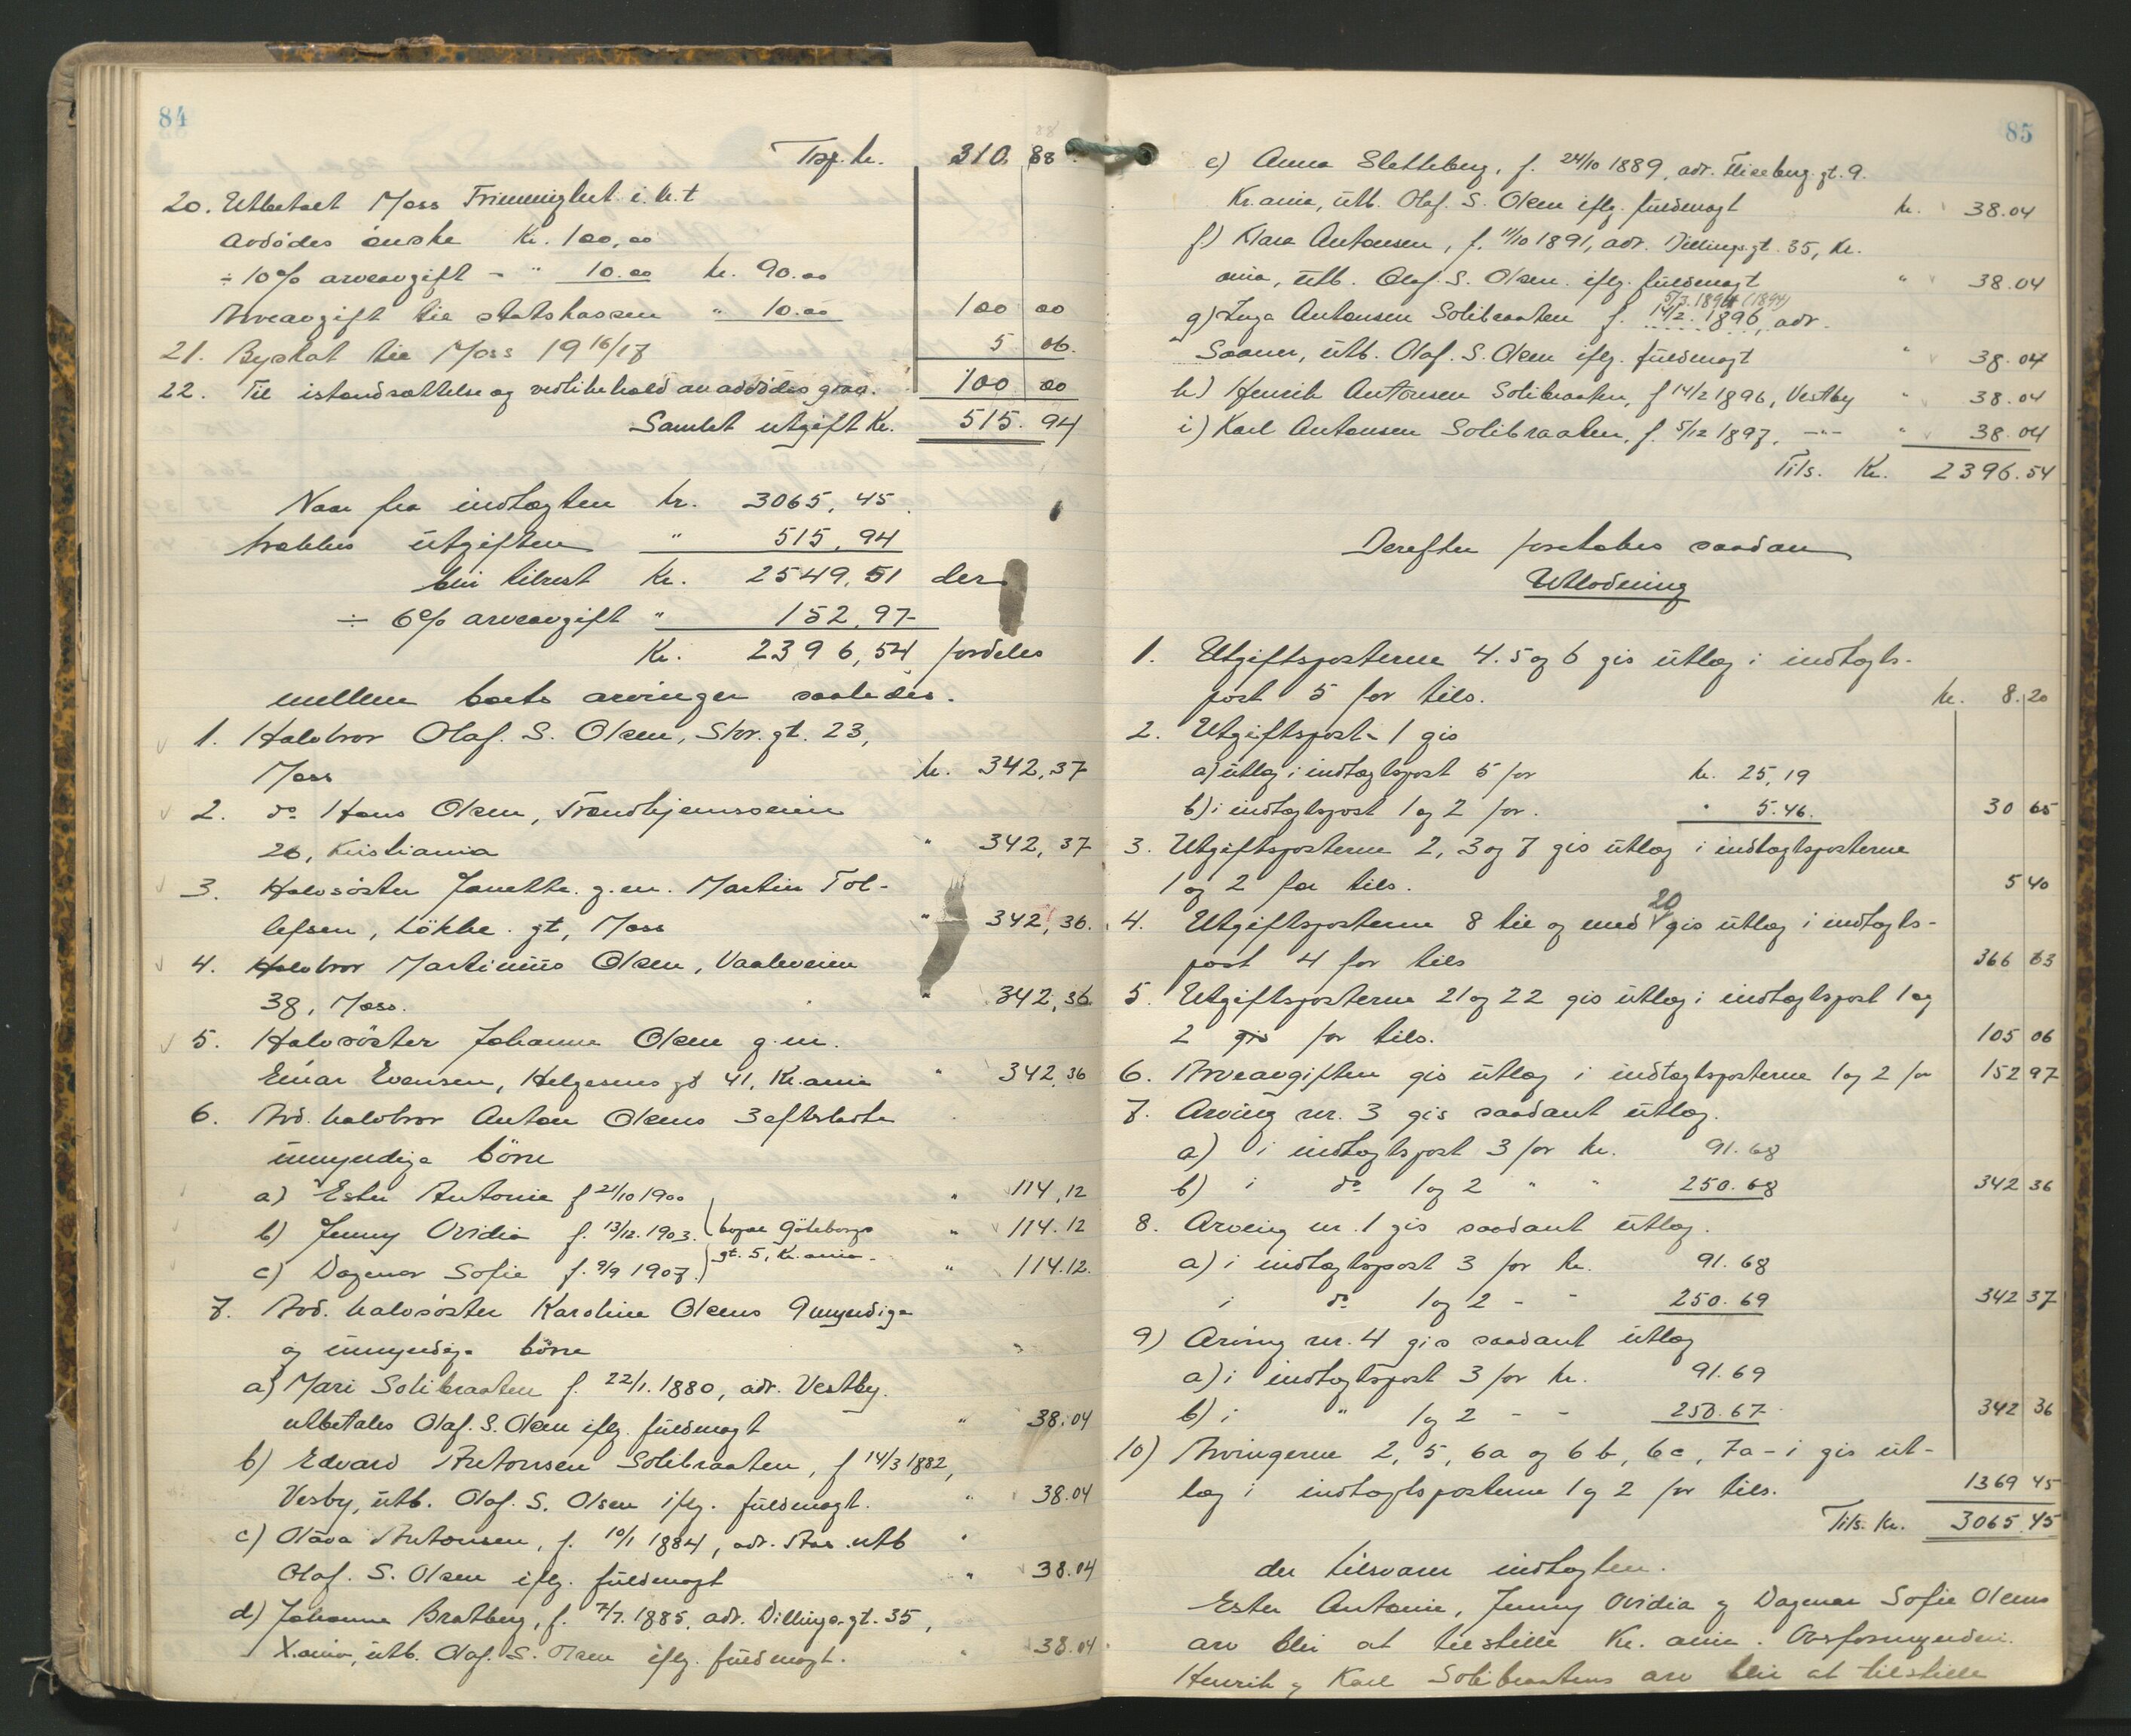 84
Trsp. kr. 310. 88
20. Utbetalt Moss Frimenighet i. h. t
avdödes önske Kr. 100,00
÷ 10% arveavgift - " 10.00 kr. 90.00
Arveavgift til statskassen " 10.00 100 00
21. Byskat til Moss 19 16/17 5 06.
22. Til istandsættelse og vedlikehold av avdödes grav. 100 00
Samlet utgift Kr. 515. 94
Naar fra indtægten kr. 3065,45
trækkes utgiften " 515,94
blir tilrest Kr. 2549,51 der
÷ 6% arveavgift " 152,97
Kr. 2396,54 fordeles
mellem boets arvinger saaledes.
1. Halvbror Olaf. S. Olsen, Stor.gt. 23,
Moss kr. 342,37
2. do Hans Olsen, Trondhjemsveien
26, Kristiania " 342,37
3. Halvsöster Janette. g. m. Martin Tol-
lefsen, Lökke. gt, Moss " 342,36.
4. Halvbror Martinius Olsen, Vaaleveien
38, Moss. " 342,36
5. Halvsöster Johanne Olsen g. m.
Einar Evensen, Helgesens gt 41, Kr.ania " 342,36
6. Avd. halvbror Anton Olsens 3 efterladte
umyndige börn
a) Ester Antonie f 21/10 1900 " 114,12
b) Jenny Ovidia f. 13/12. 1903. bopæl Göteborgs " 114.12
c) Dagmar Sofie f. 9/9 1907. gt. 5, Kr.ania. " 114.12.
7. Avd. halvsöster Karoline Olsens 9 myndige
og umyndige börn
a) Mari Solibraaten f. 22/1. 1880, adr. Vestby.
utbetales Olaf. S. Olsen iflg. fuldmagt " 38.04
b) Edvard Antonsen Solibraaten, f 14/3 1882,
Vesby, utb. Olaf. S. Olsen iflg. fuldmagt. " 38.04
c) Olava Antonsen, f. 10/1 1884, adr. Aas. utb
Olaf. S. Olsen iflg. fuldmagt " 38.04
d) Johanne Bratberg, f. 7/7. 1885, adr. Dillings.gt. 35,
X.ania, utb. Olaf. S. Olsen iflg. fuldmagt. " 38.04
85
e) Anna Sletteberg, f. 24/10 1889, adr. gt. 9.
Kr.ania, utb. Olaf. S. Olsen iflg. fuldmagt kr. 38.04
f.) Klara Antonsen, f. 11/10 1891, adr. Dillings.gt. 35, Kr.
ania, utb. Olaf. S. Olsen. iflg. fuldmagt " 38.04
5/3. 1894 (1894)
g) Inga Antonsen Solibraaten f. 14/2. 1896, adr.
Saaner, utb. Olaf. S. Olsen iflg. fuldmagt " 38.04
h) Henrik Antonsen Solibraaten, f 14/2 1896, Vestby " 38.04
i) Karl Antonsen Solibraaten, f. 5/12 1897, —"— " 38.04
Tils. Kr. 2396.54
Derefter foretokes saadan
Utlodning
1. Utgiftsposterne 4. 5 og 6 gis utlæg i indtægts-
post 5 for tils. kr. 8.20
2. Utgiftspost 1 gis
a) utlæg i indtægtspost 5 for kr. 25,19
b) i indtægtspost 1 og 2 for. " 5.46. 30 65
3. Utgiftsposterne 2, 3 og 7 gis utlæg i indtægtsposterne
1 og 2 for tils. 5 40
4. Utgiftsposterne 8 til og med 20 gis utlæg i indtægts-
post 4 for tils 366 63
5. Utgiftsposterne 21 og 22 gis utlæg i indtægtspost 1 og
2 gis for tils. 105 06
6. Arveavgiften gis utlæg i indtægtsposterne 1 og 2 for 152 97
7. Arving nr. 3 gis saadant utlæg.
a) i indtægtspost 3 for kr. 91.68
b) i do 1 og 2 " " 250.68 342 36
8. Arving nr. 1 gis saadant utlæg.
a) i indtægtspost 3 for kr. 91.68
i do 1 og 2 - - 250.69 342 37
9) Arving nr. 4 gis saadant utlæg
a) i indtægtspost 3 for kr. 91.69
b) i " 1 og 2 - - 250.67 342 36
10) Arvingerne 2, 5, 6a og 6 b, 6c, 7a - i gis ut-
læg i indtægtsposterne 1 og 2 for tils. 1369 45
Tils. Kr. 3065.45
der tilsvarer indtægten.
Ester Antonie, Jenny Ovidia og Dagmar Sofie Olsens
arv blir at tilstille Kr. ania. Overformynderi.
Henrik og Karl Solibraatens arv blir at tilstille